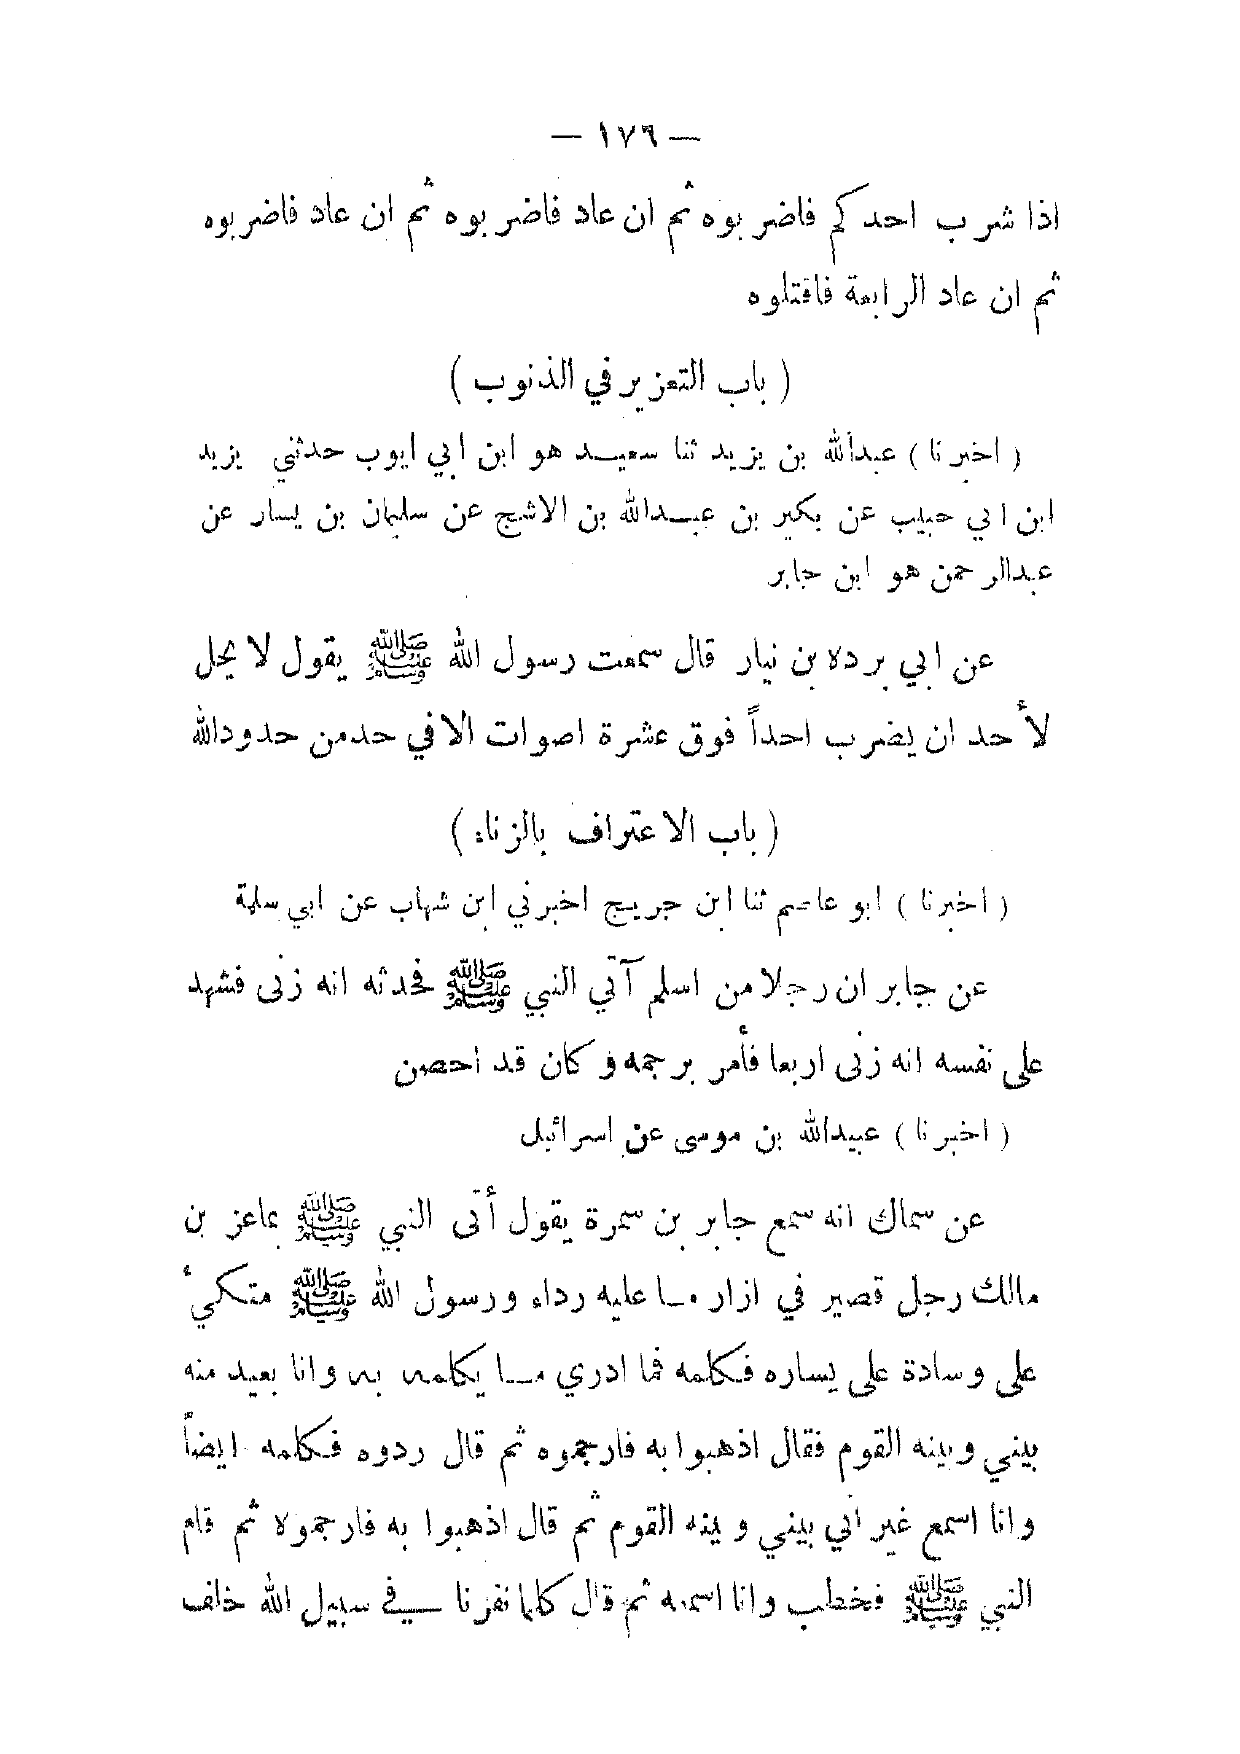 — ١٧٦ —
اذا شرب احدكم فاضربوه ثم ان عاد فاضربوه ثم ان عاد فاضربوه
ثم ان عاد الرابعة فاقتلوه
( باب التعزير في الذنوب )
( اخبرنا ) عبدالله بن يزيد ثنا سعيد هو ابن ابي ايوب حدثني يزيد
ابن ابي حبيب عن بكير بن عبدالله بن الاشج عن سليمان بن يسار عن
عبدالرحمن هو ابن جابر
عن ابي برده بن نيار قال سمعت رسول الله ﷺ يقول لا يحل
لأحد ان يضرب احداً فوق عشرة اصوات الا في حد من حدودالله
( باب الاعتراف بالزناء )
( اخبرنا ) ابو عاصم ثنا ابن جريج اخبرني ابن شهاب عن ابي سلمة
عن جابر ان رجلا من اسلم آتى النبي ﷺ فحدثه انه زنى فشهد
على نفسه انه زنى اربعا فأمر برجمه وكان قد احصن
( اخبرنا ) عبيدالله بن موسى عن اسرائيل
عن سماك انه سمع جابر بن سمرة يقول أتى النبي ﷺ بماعز بن
مالك رجل قصير في ازار ما عليه رداء ورسول الله ﷺ متكئ
على وسادة على يساره فكلمه فما ادري ما يكلمه به وانا بعيد منه
بيني وبينه القوم فقال اذهبوا به فارجموه ثم قال ردوه فكلمه ايضاً
وانا اسمع غير اني بيني وبينه القوم ثم قال اذهبوا به فارجموه ثم قام
النبي ﷺ فخطب وانا اسمعه ثم قال كلما نفرنا في سبيل الله خلف